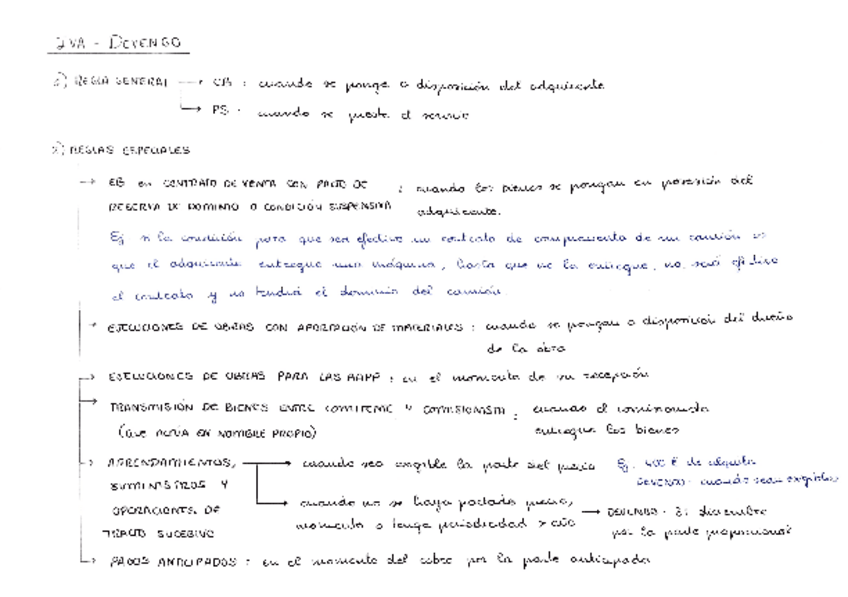 IVA - DEVENGO
1) REGLA GENERAL → EB : cuando se ponga a disposición del adquirente
→ PS : cuando se preste el servicio
2) REGLAS ESPECIALES
→ EB en CONTRATO DE VENTA CON PACTO DE : cuando los bienes se pongan en posesión del
RESERVA DE DOMINIO O CONDICIÓN SUSPENSIVA adquirente.
Ej si la condición para que sea efectivo un contrato de compraventa de un camión es
que el adquirente entregue una máquina, hasta que no la entregue, no será efectivo
el contrato y no tendrá el dominio del camión.
→ EJECUCIONES DE OBRAS CON APORTACIÓN DE MATERIALES : cuando se pongan a disposición del dueño
de la obra
→ EJECUCIONES DE OBRAS PARA LAS AAPP : en el momento de su recepción
→ TRANSMISIÓN DE BIENES ENTRE COMITENTE Y COMISIONISTA : cuando el comisionista
(QUE ACTÚA EN NOMBRE PROPIO) entregue los bienes
→ ARRENDAMIENTOS, → cuando sea exigible la parte del precio Ej. 400 € de alquiler
SUMINISTROS Y DEVENGO : cuando sean exigibles
OPERACIONES DE → cuando no se haya pactado precio, → DEVENGO : 31 diciembre
TRACTO SUCESIVO momento o tenga periodicidad > año por la parte proporcional
→ PAGOS ANTICIPADOS : en el momento del cobro por la parte anticipada